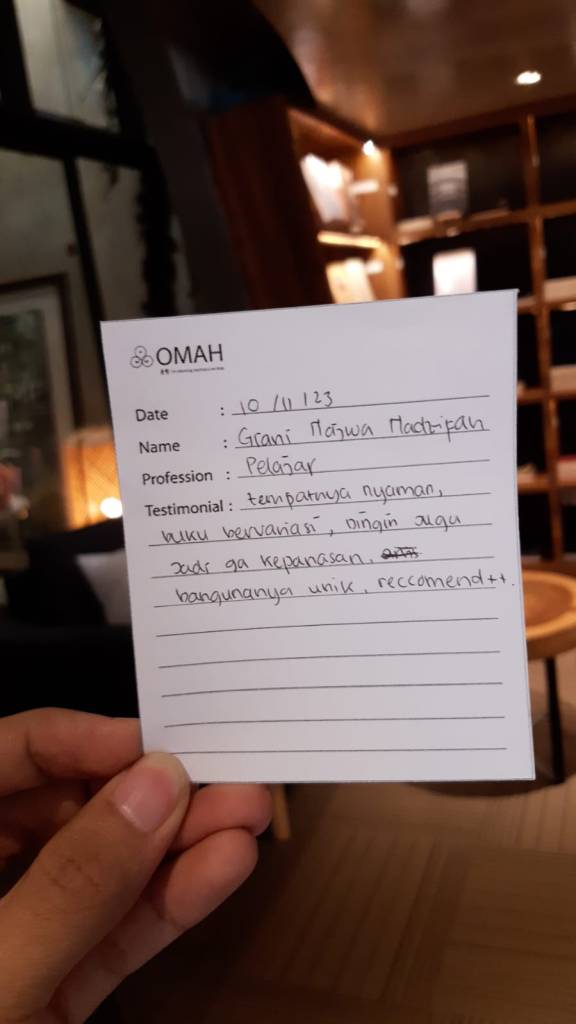 OMAH
Date : 10 / 11 / 23
Name : Grani Najwa Nadzifah
Profession : Pelajar
Testimonial : tempatnya nyaman,
buku bervariasi, dingin juga
jadi ga kepanasan.
bangunanya unik. reccomend++.